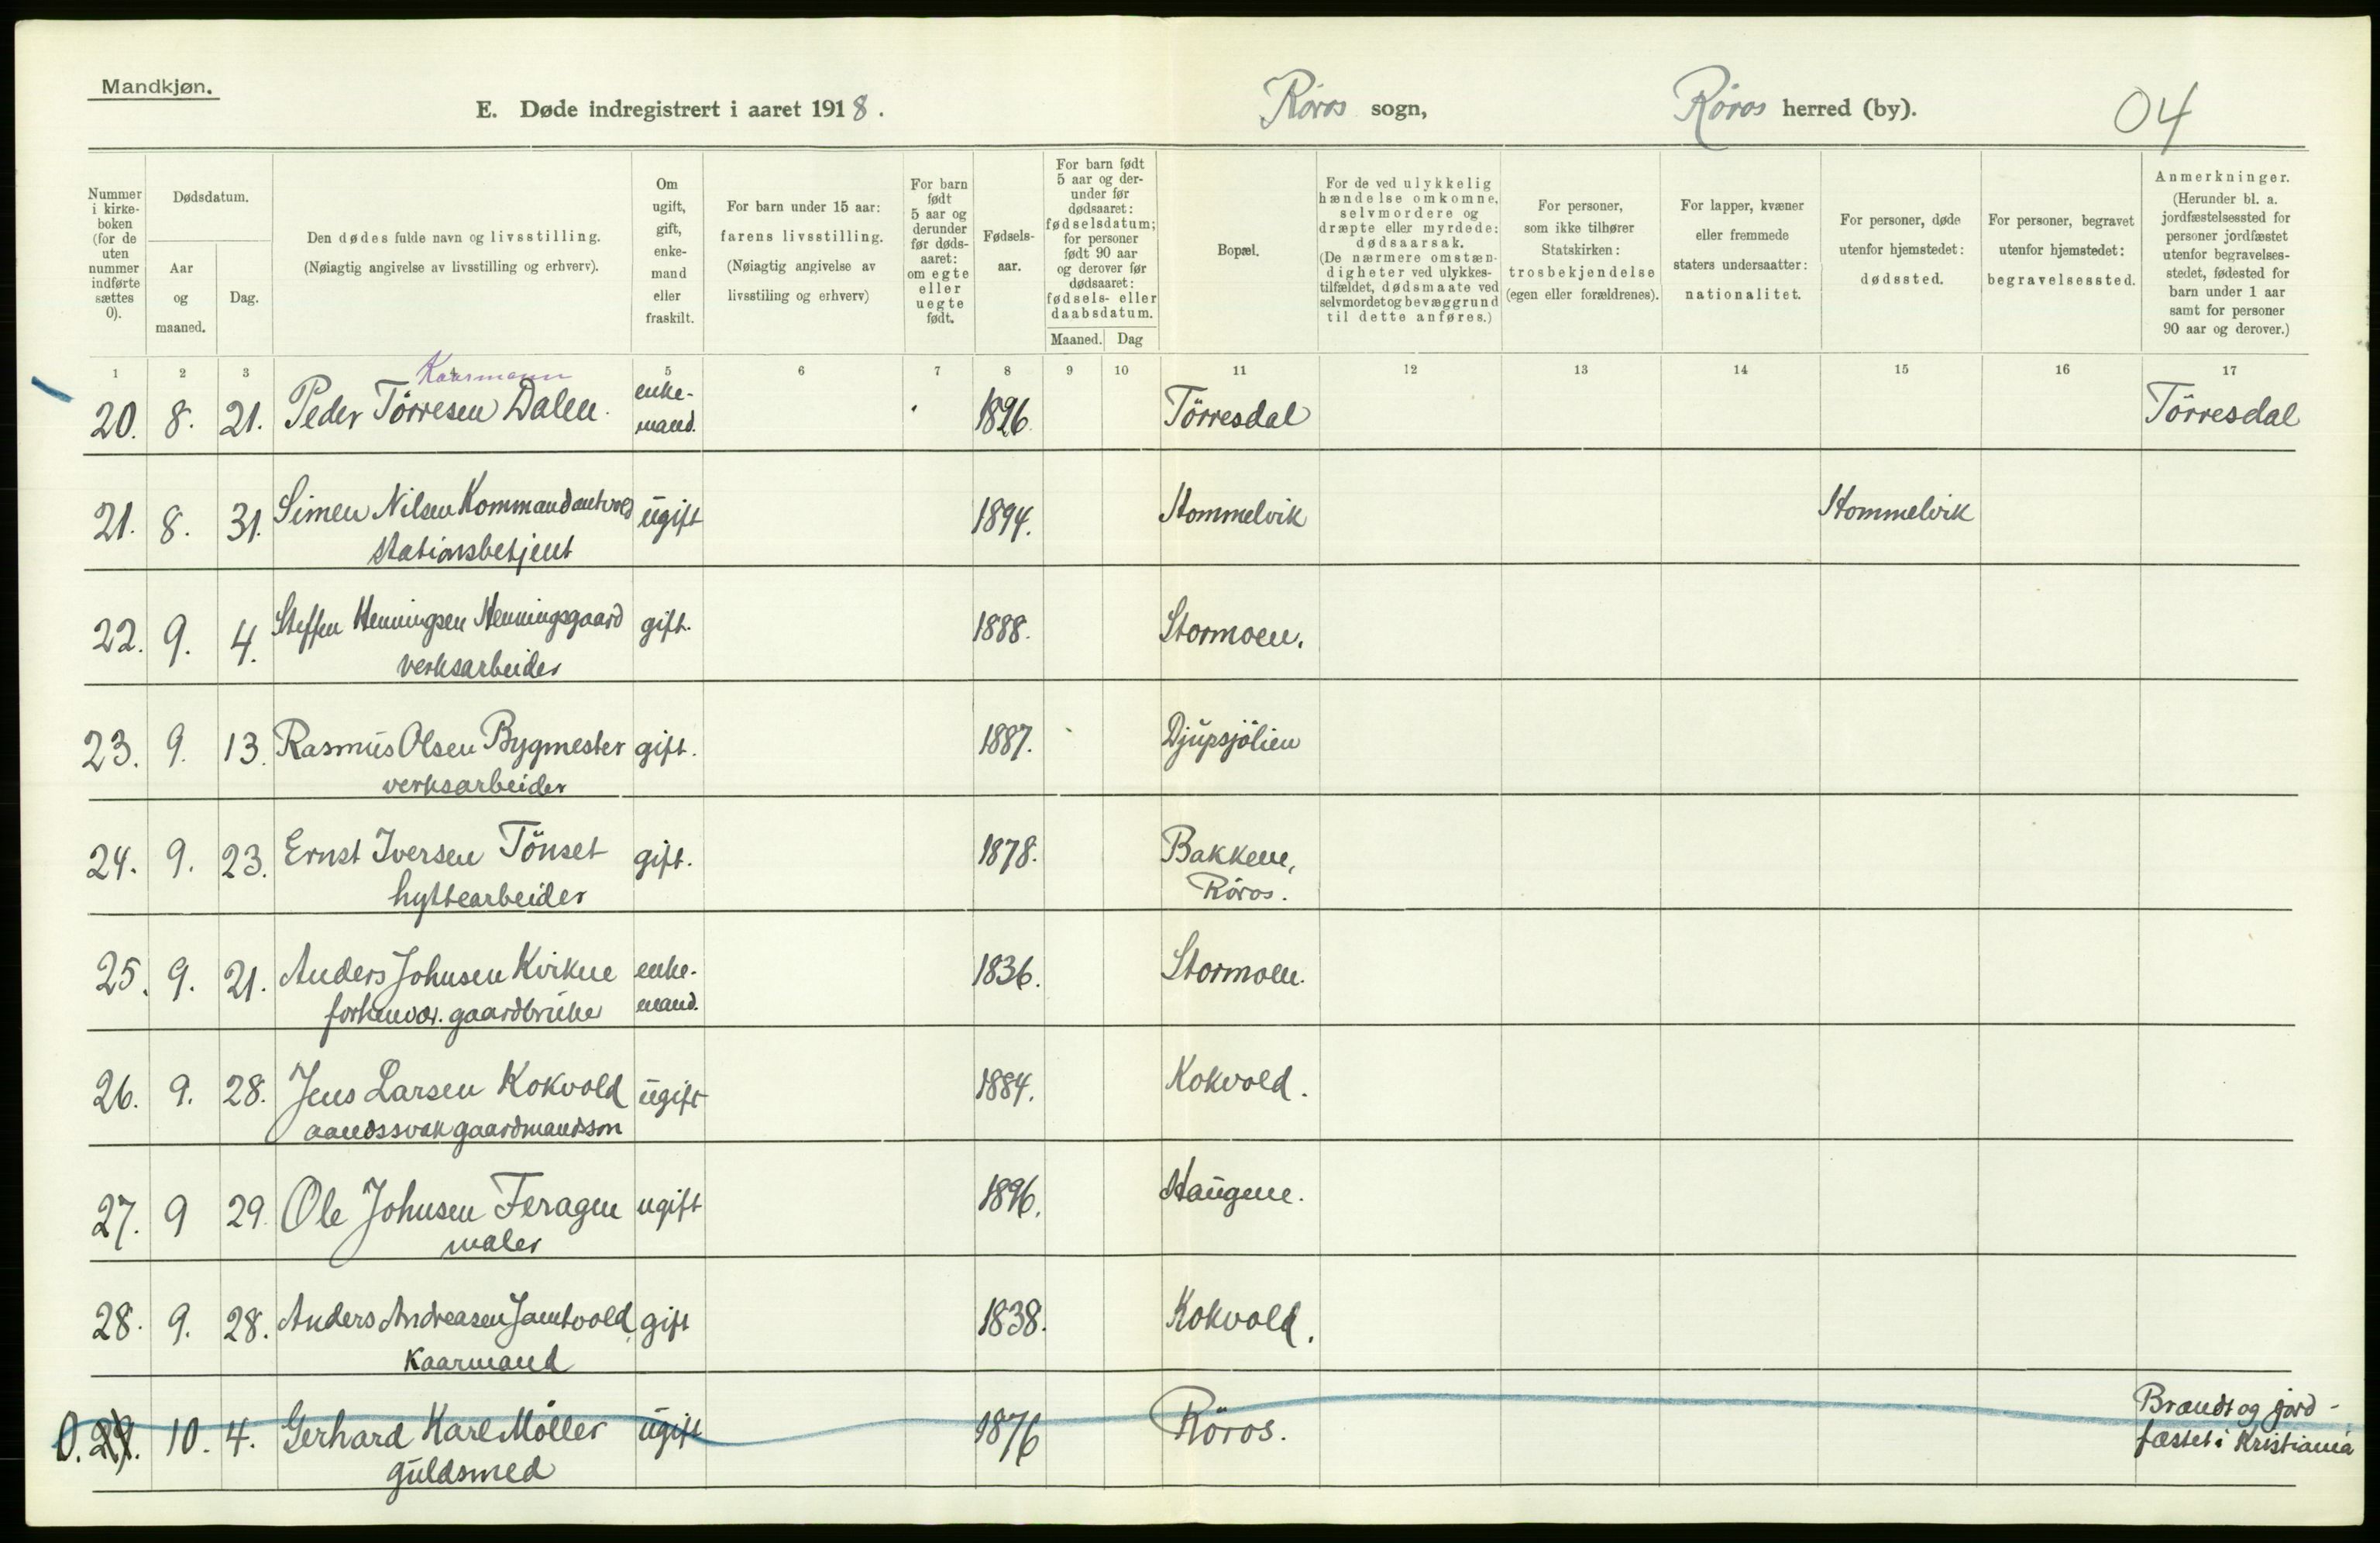 Mandkjøn.
E. Døde indregistrert i aaret 1918. Röros sogn, Röros herred (by). 04
Nummer i kirke-boken (for de uten nummer indførte sættes 0).
Dødsdatum.
Aar og maaned.
Dag.
Den dødes fulde navn og livsstilling.
(Nøiagtig angivelse av livsstilling og erhverv).
Om ugift, gift, enke-mand eller fraskilt.
For barn under 15 aar:
farens livsstilling.
(Nøiagtig angivelse av
livsstiling og erhverv)
For barn født 5 aar og derunder før døds-aaret: om egte eller uegte født.
Fødsels-aar.
For barn født 5 aar og der-under før dødsaaret: fødselsdatum; for personer født 90 aar og derover før dødsaaret: fødsels- eller daabsdatum.
Maaned. Dag
Bopæl.
For de ved ulykkelig hændelse omkomne, selvmordere og dræpte eller myrdede: dødsaarsak. (De nærmere omstæn-digheter ved ulykkes-tilfældet, dødsmaate ved selvmordet og bevæggrund til dette anføres.)
For personer, som ikke tilhører Statskirken: trosbekjendelse (egen eller forældrenes).
For lapper, kvæner eller fremmede staters undersaatter: nationalitet.
For personer, døde utenfor hjemstedet: dødssted.
For personer, begravet utenfor hjemstedet: begravelsessted.
Anmerkninger.
(Herunder bl. a. jordfæstelsessted for personer jordfæstet utenfor begravelses-stedet, fødested for barn under 1 aar samt for personer 90 aar og derover.)
1 2 3 4 5 6 7 8 9 10 11 12 13 14 15 16 17
Kaarmann
20. 8. 21. Peder Törresen Dalen. enke-mand. 1826 Törresdal Törresdal
21. 8. 31. Simen Nilsen Kommandantvold ugift 1894. Hommelvik Hommelvik
stationsbetjent
22. 9. 4. Steffen Henningsen Henningsgaard gift. 1888. Stormoen.
verksarbeider
23. 9. 13. Rasmus Olsen Bygmester gift. 1887. Djupsjölien
verksarbeider
24. 9. 23. Ernst Iversen Tönset gift. 1878. Bakkene, Röros.
hyttearbeider
25. 9. 21. Anders Johnsen Kirkne enke-mand. 1836. Stormoen.
forhenvær. gaardbruker
26. 9. 28. Jens Larsen Kokvold ugift 1884. Kokvold.
aandssvak gaardmandssøn
27. 9 29. Ole Johnsen Feragen ugift 1896. Haugene.
maler
28. 9. 28. Anders Andreasen Jamtvold gift 1838. Kokvold.
Kaarmand
0. 29. 10. 4. Gerhard Karl Möller ugift 1876 Röros. Brændt og jord-
guldsmed fæstet i Kristiania